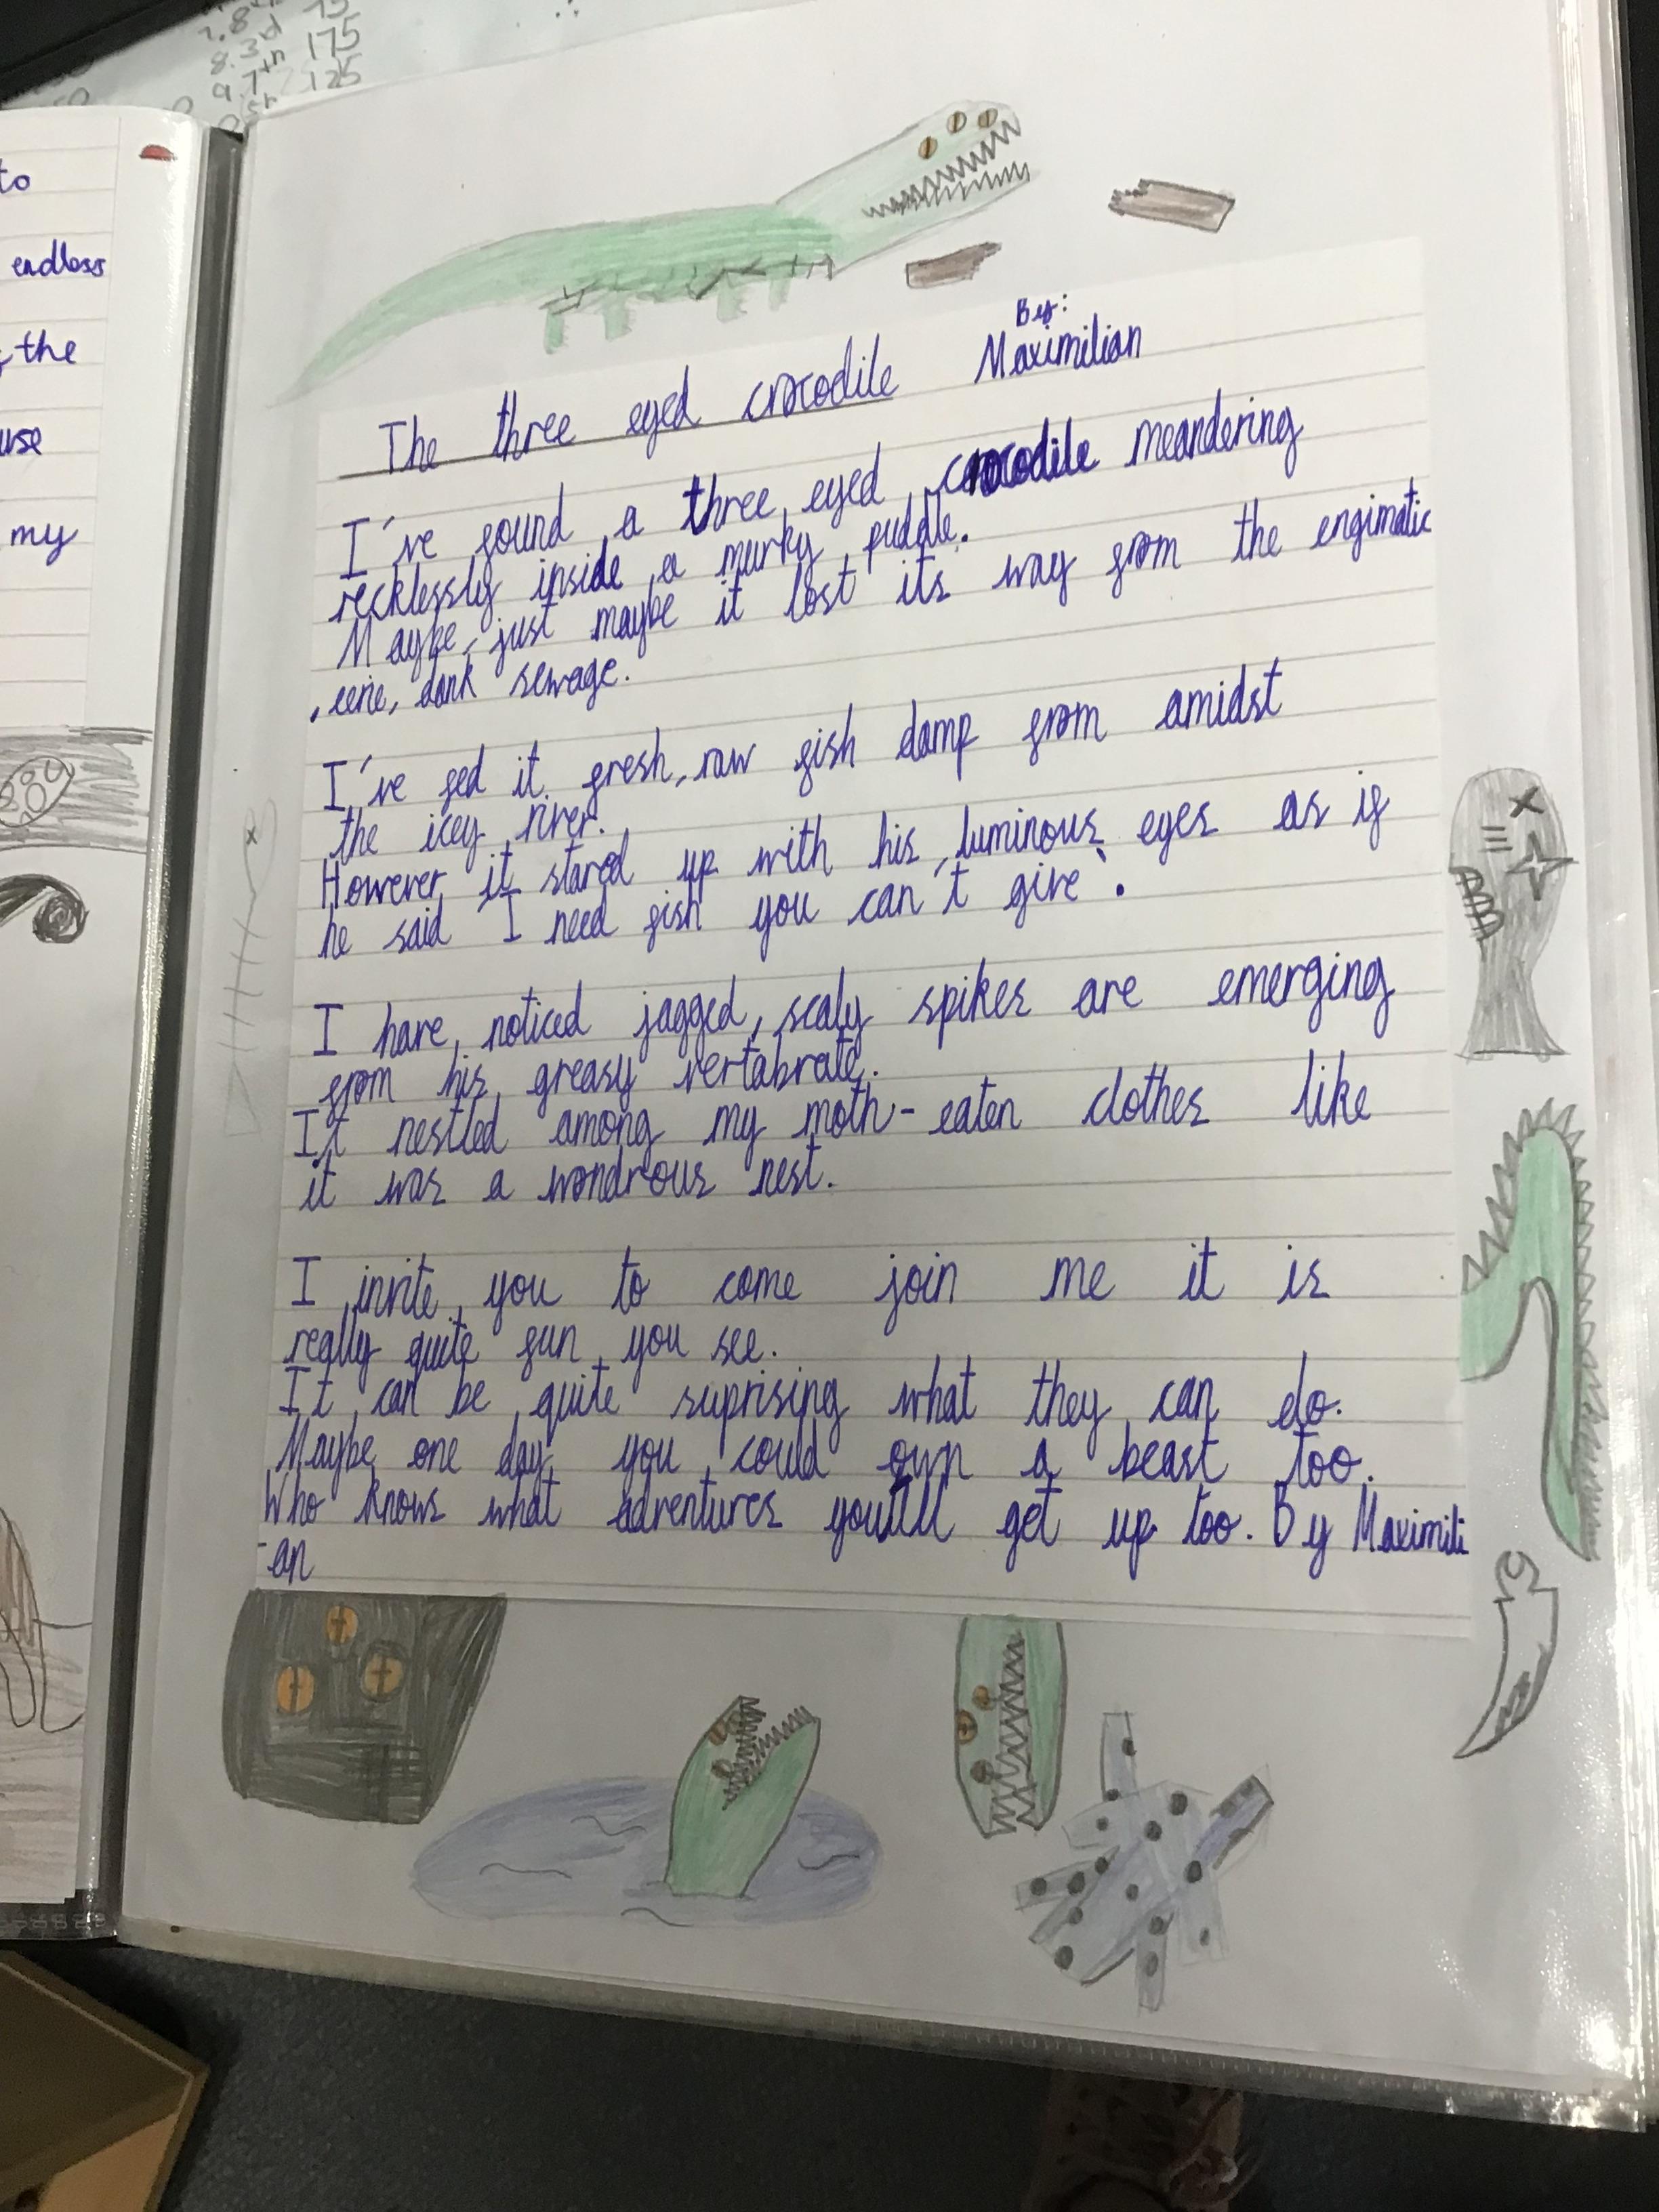 7.8
8.3d 175
9.7th 125
to
endless
the
my
By:
The three eyed crocodile Maximilian
I've found a three eyed crocodile meandering
recklessly inside a murky puddle.
Maybe, just maybe it lost its way from the engimatic
, eerie, dank sewage.
I've fed it fresh, raw fish damp from amidst
the icey river.
However it stared up with his luminous eyes as if
he said 'I need fish you can't give'.
I have noticed jagged, scaly spikes are emerging
from his greasy vertabrate.
It nestled among my moth-eaten clothes like
it was a wondrous nest.
I invite you to come join me it is
really quite fun you see.
It can be quite suprising what they can do.
Maybe one day you could own a beast too.
Who knows what adventures you'll get up too. By Maximili
-an